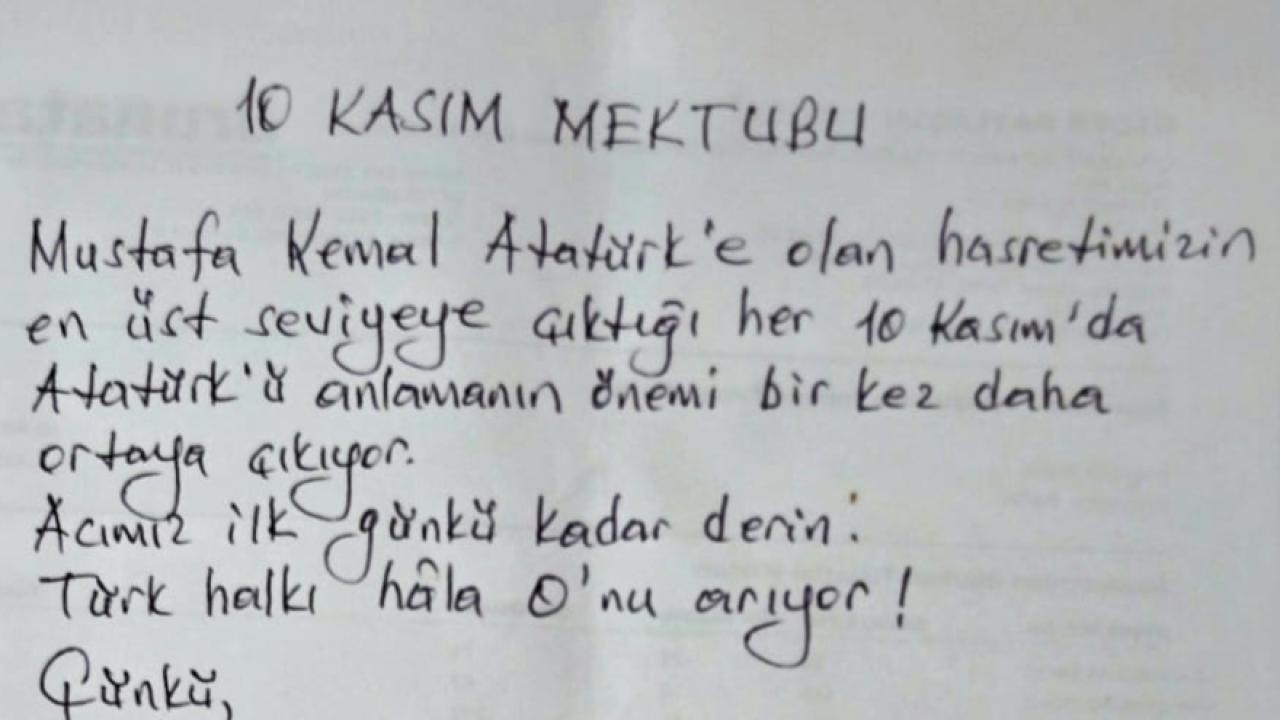 10 KASIM MEKTUBU
Mustafa Kemal Atatürk'e olan hasretimizin
en üst seviyeye çıktığı her 10 Kasım'da
Atatürk'ü anlamanın önemi bir kez daha
ortaya çıkıyor.
Acımız ilk günkü kadar derin:
Türk halkı hâla O'nu arıyor!
Çünkü,